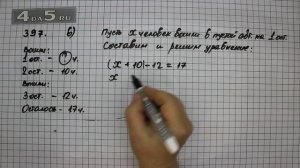 4DA5.RU
397. б)
Вошли:
1 ост. - ? ч.
2 ост. - 10 ч.
Вышли:
3 ост. - 12 ч.
Осталось - 17 ч.
Пусть x человек вошли в пустой авт. на 1 ост.
Составим и решим уравнение:
(x + 10) - 12 = 17
x